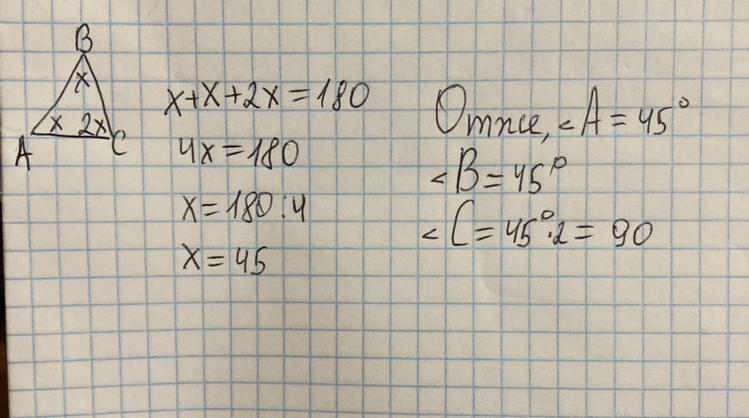 B
x
x 2x
A C
x+x+2x=180
4x=180
x=180:4
x=45
Отже, <A=45°
<B=45°
<C=45°·2=90